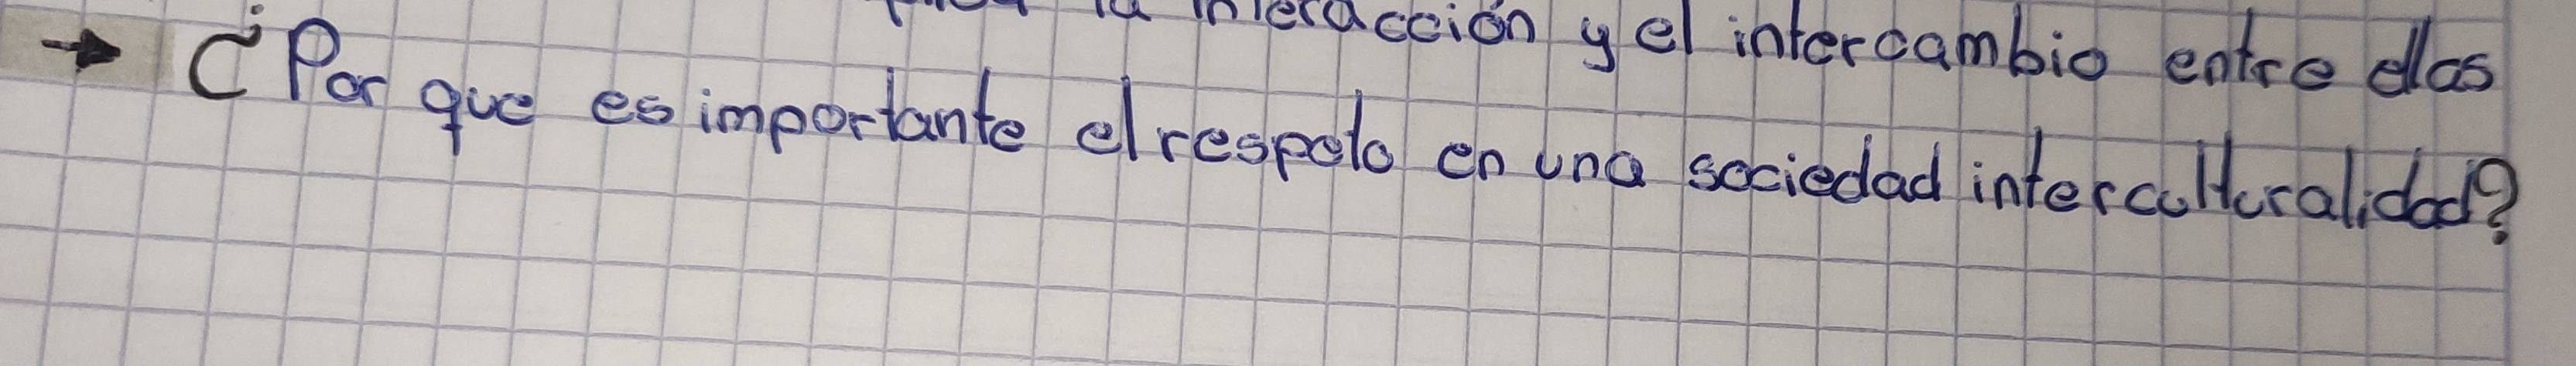 la interacción y el intercambio entre ellas
→ ¿Por que es importante el respeto en una sociedad interculturalidad?